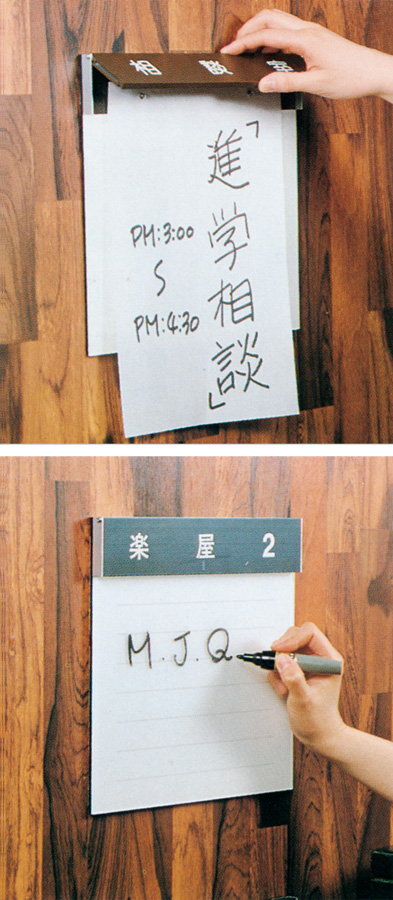 相談室
「進学相談」
PM:3:00
〜
PM:4:30
楽屋2
M.J.Q.